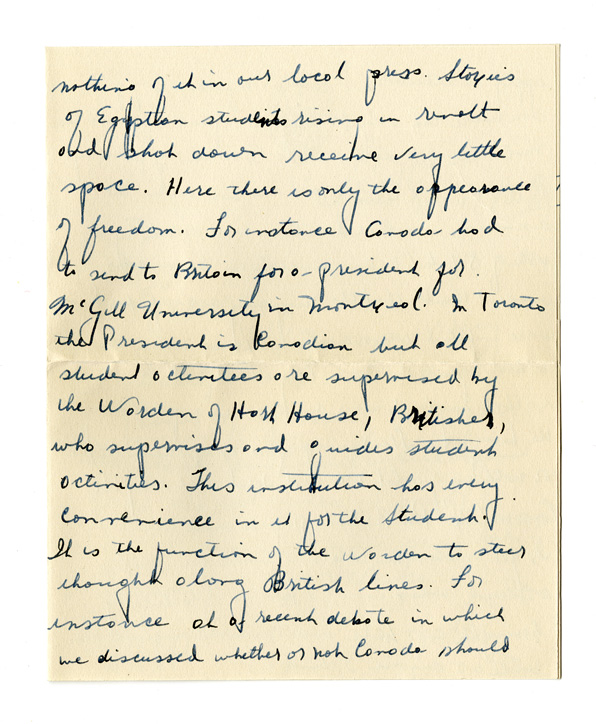 nothing of it in our local press. Stories
of Egyptian students rising in revolt
and shot down receive very little
space. Here there is only the appearance
of freedom. For instance Canada had
to send to Britain for a president for
McGill University in Montreal. In Toronto
the President is Canadian but all
student activitees are supervised by
the Warden of Hart House, Britisher,
who supervises and guides student
activities. This institution has every
convenience in it for the Student.
It is the function of the Warden to steer
thought along British lines. For
instance at a recent debate in which
we discussed whether or not Canada should